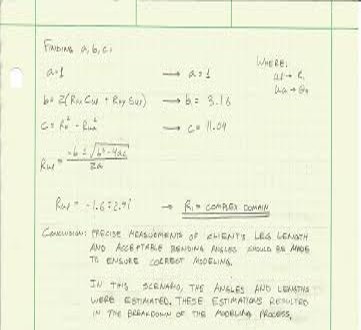 FINDING a, b, c:
WHERE:
a=1 → a=1
b= 2(Rux Cur + Ruy Sur) → b= 3.16
c= → c= 11.04
= -b ± √b²-4ac
2a
= -1.6 ± 2.9i → R₁ = COMPLEX DOMAIN
CONCLUSION: PRECISE MEASUREMENTS OF CLIENT'S LEG LENGTH
AND ACCEPTABLE BENDING ANGLES SHOULD BE MADE
TO ENSURE CORRECT MODELING.
IN THIS SCENARIO, THE ANGLES AND LENGTHS
WERE ESTIMATED. THESE ESTIMATIONS RESULTED
IN THE BREAKDOWN OF THE MODELING PROCESS,